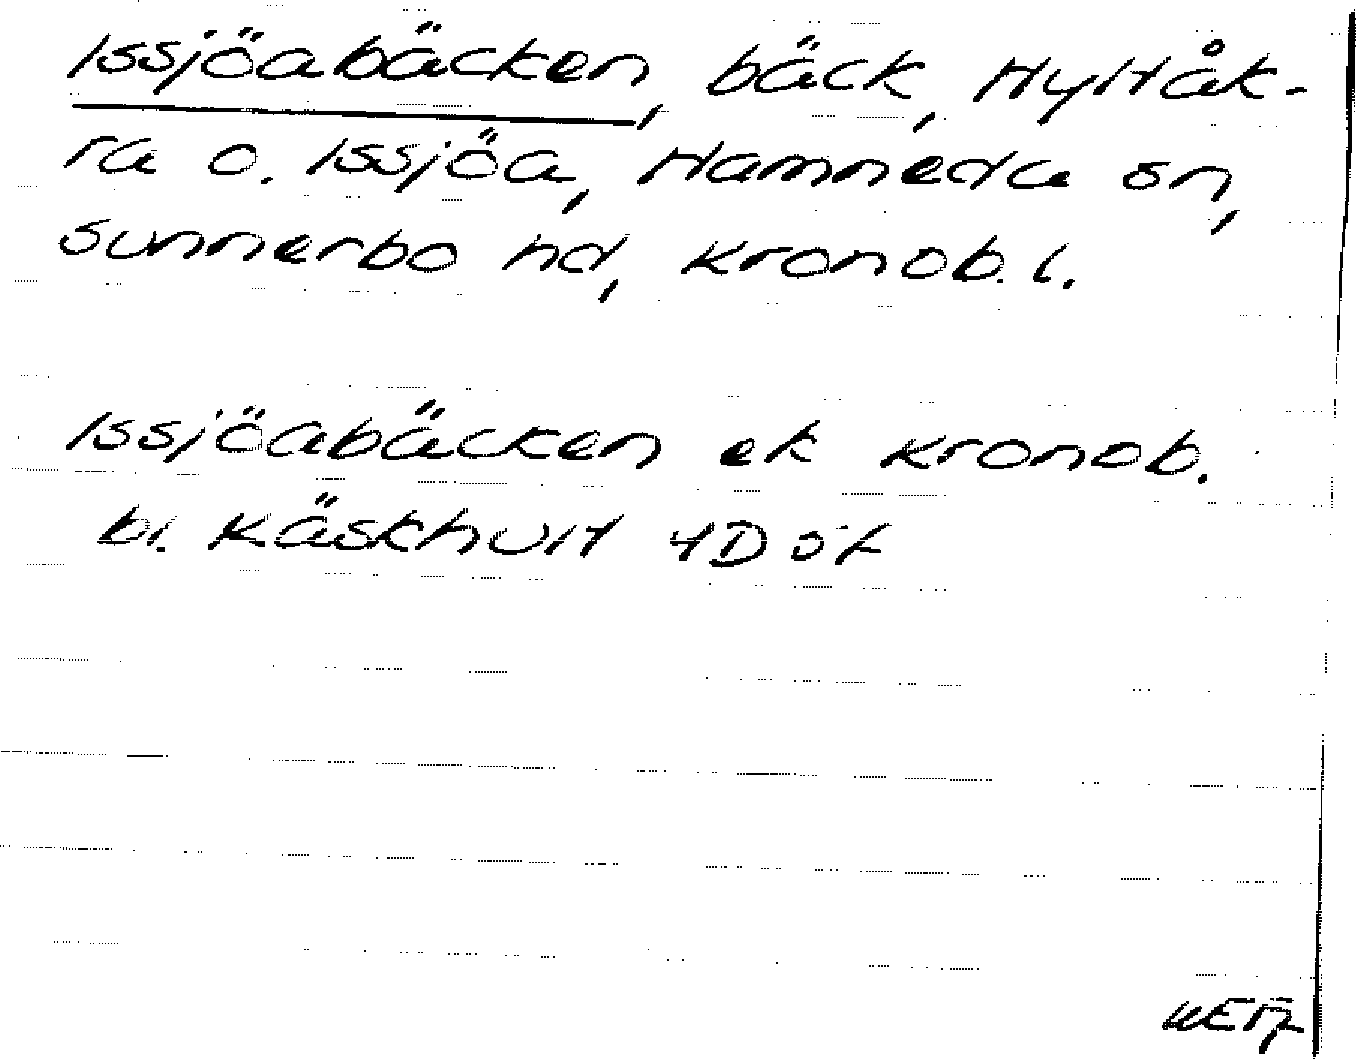 Issjöabäcken, bäck, Hyltåk-
ra o. Issjöa, Hamneda sn,
Sunnerbo hd, Kronob. l.
Issjöabäcken ek Kronob.
bl. Käskhult 4D